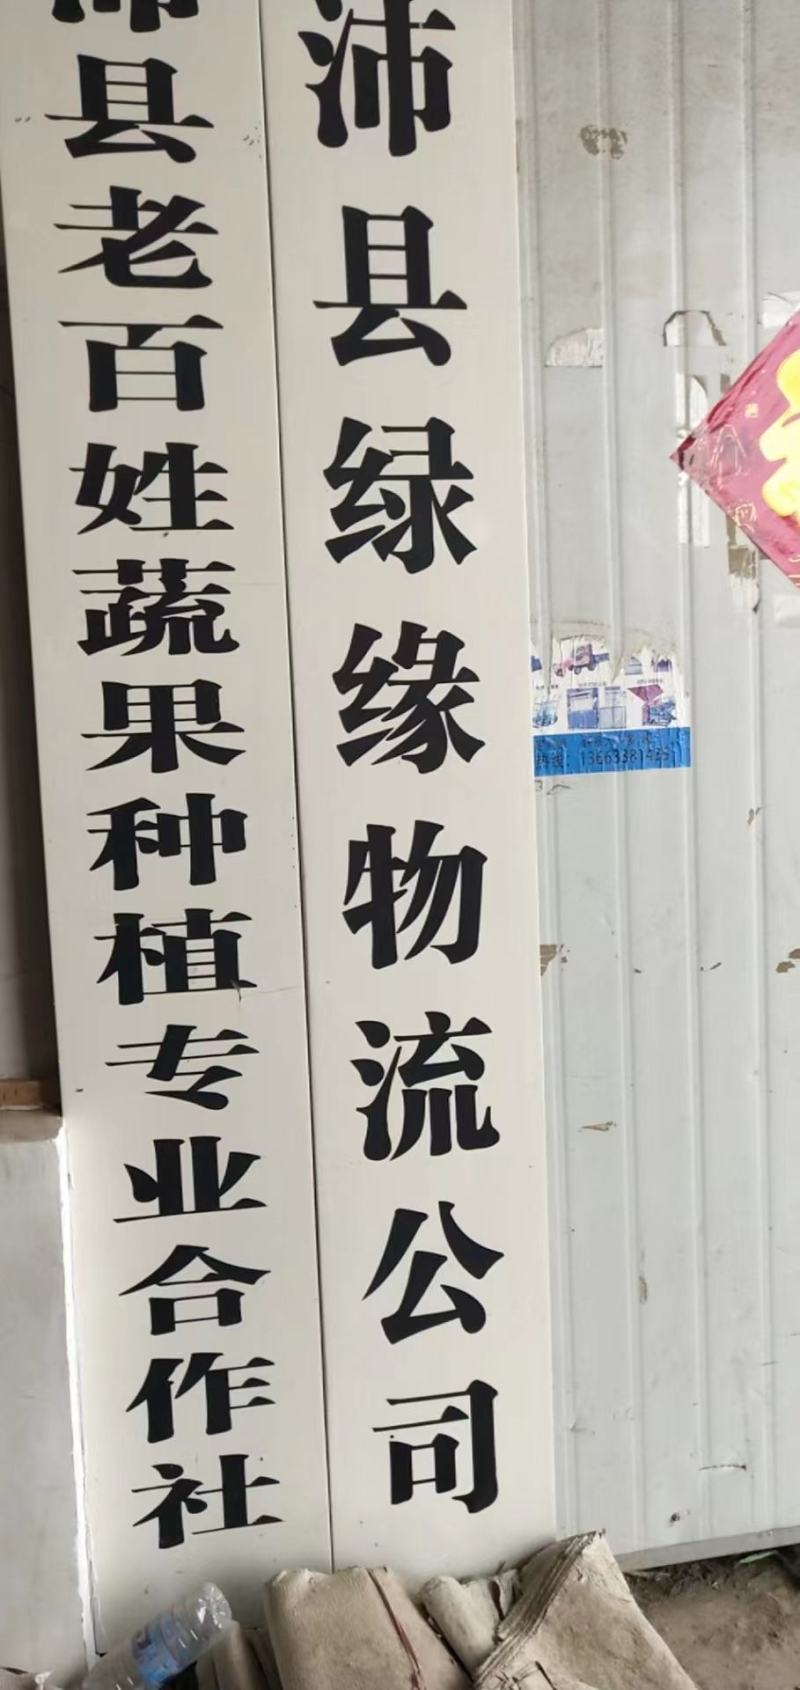 沛县老百姓蔬果种植专业合作社
沛县绿缘物流公司
热线：